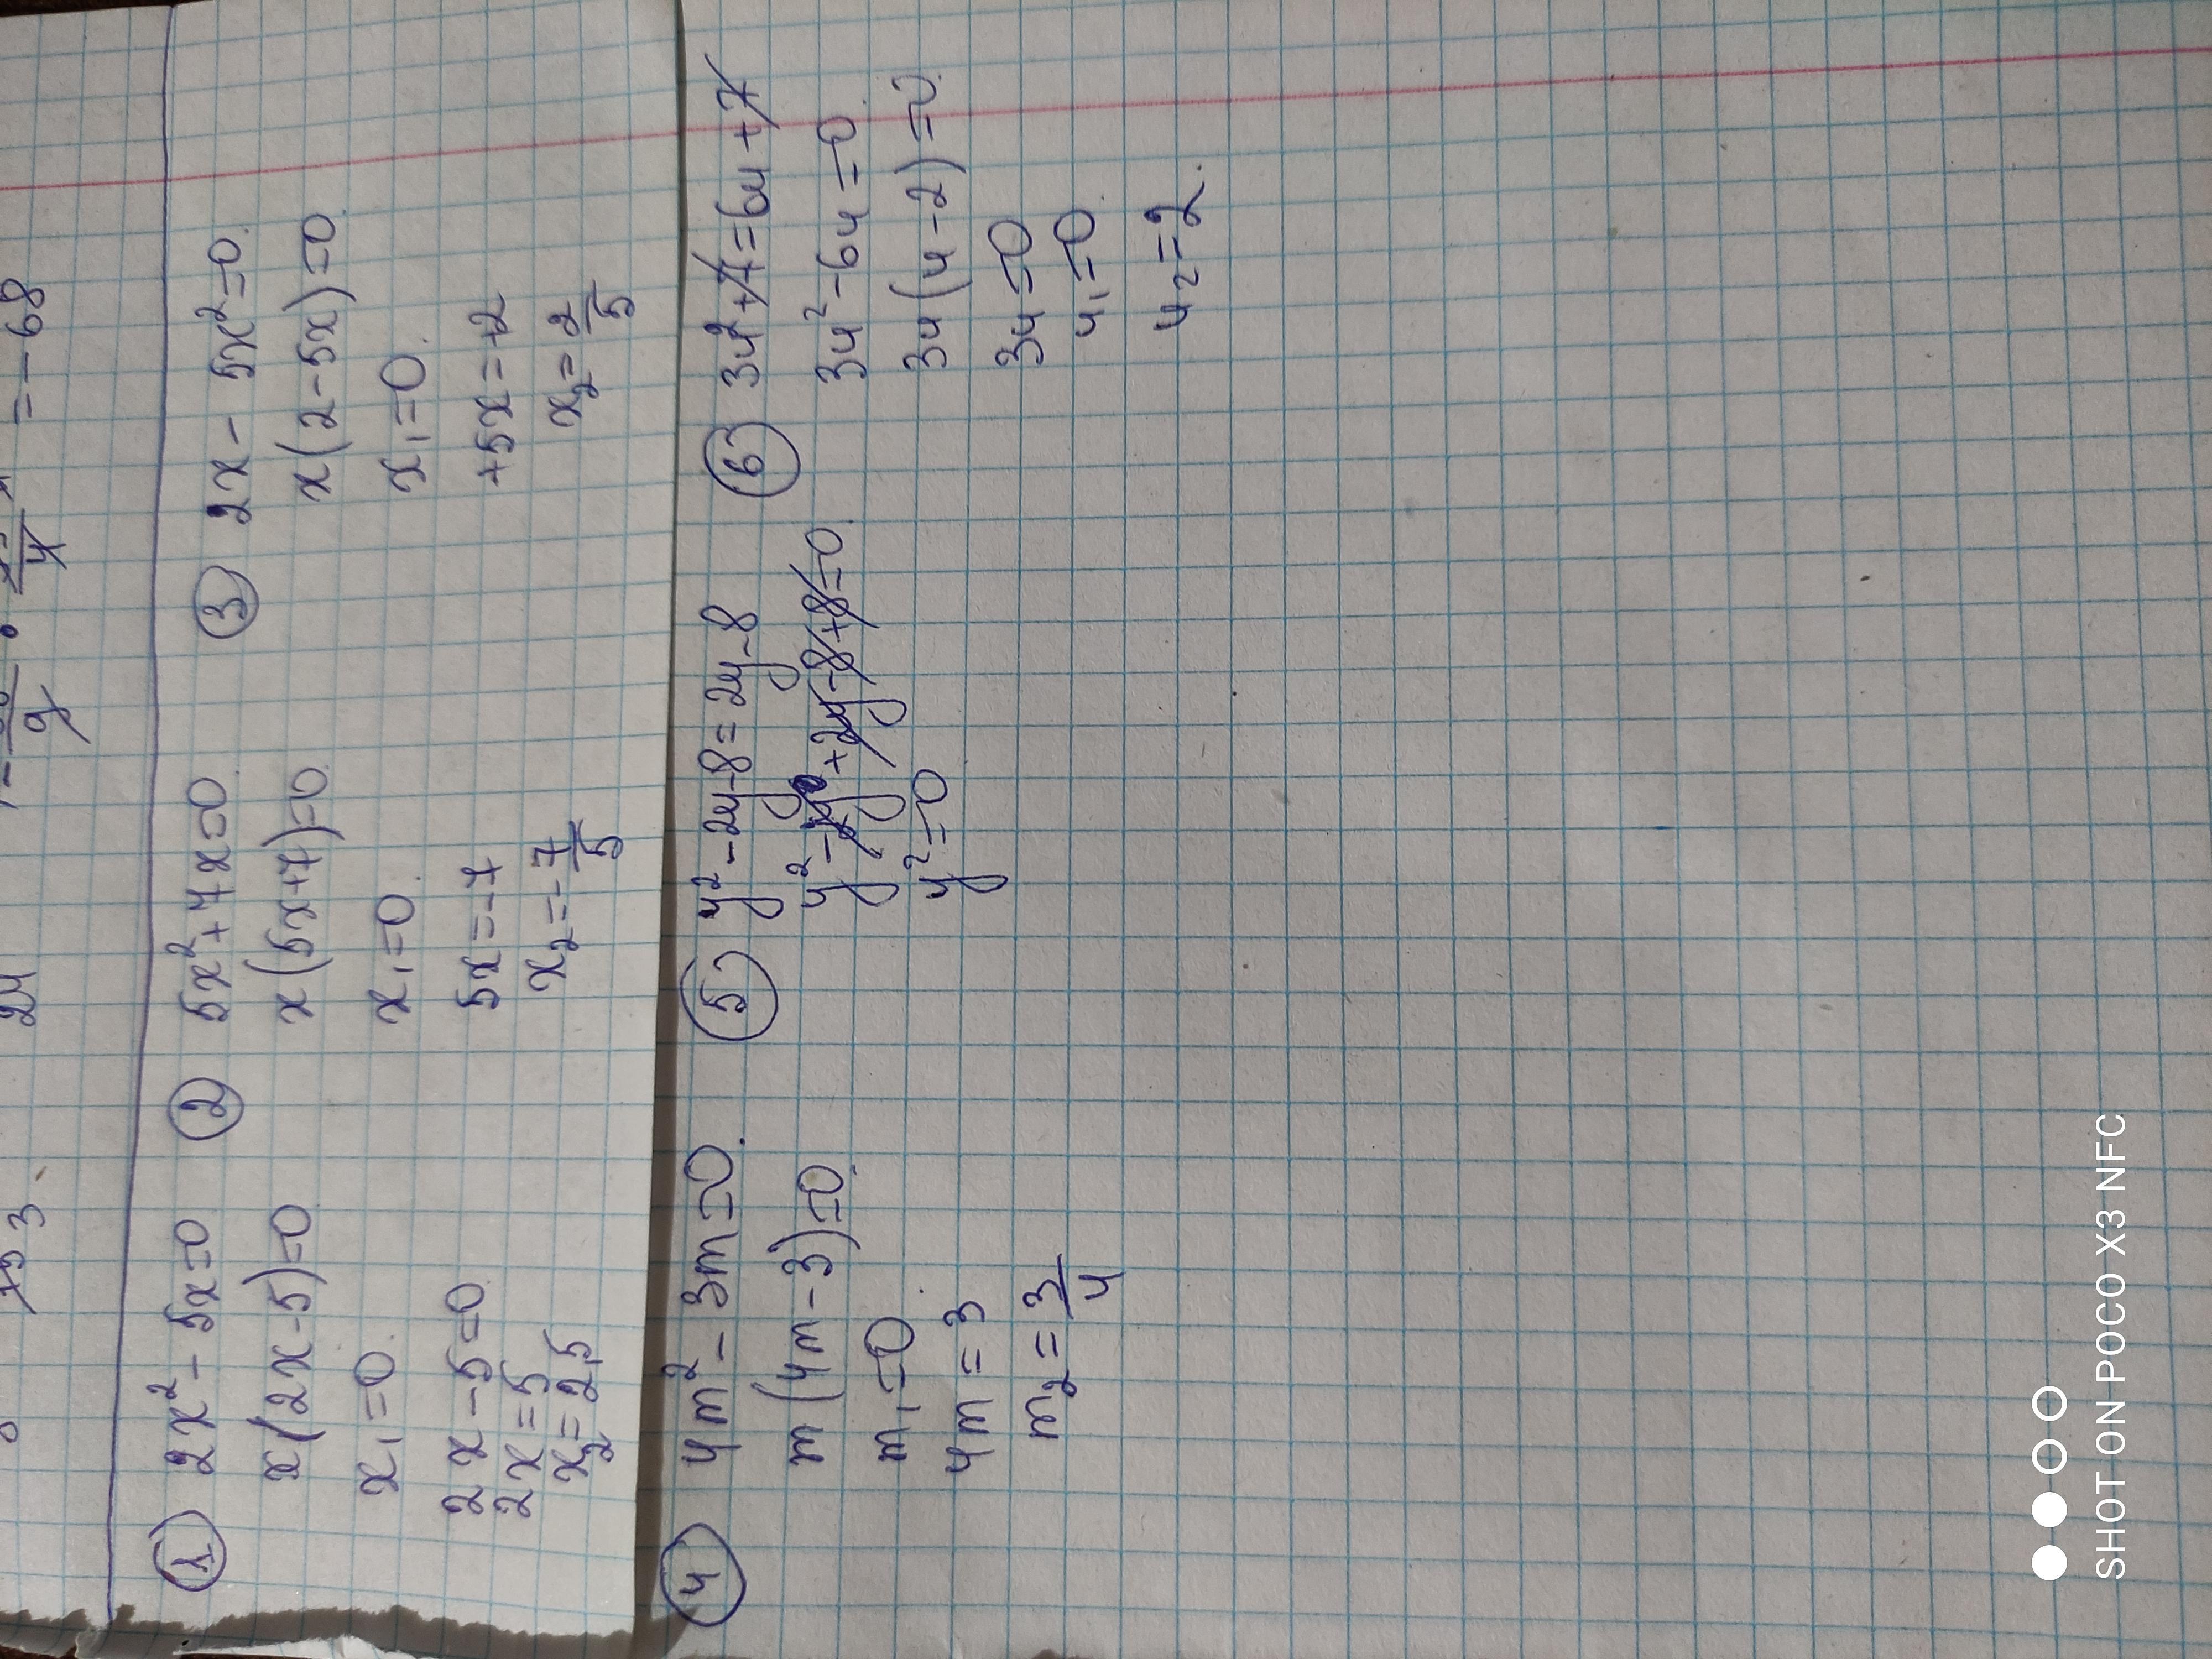 = - 68
24
① 2x² - 5x = 0
x(2x - 5) = 0
x₁ = 0.
2x - 5 = 0
2x = 5
x₂ = 2,5
② 5x² + 7x = 0.
x(5x + 7) = 0.
x₁ = 0.
5x = -7
x₂ = -7/5
③ 2x - 5x² = 0.
x(2 - 5x) = 0.
x₁ = 0.
+5x = +2
x₂ = 2/5
④ 4m² - 3m = 0.
m(4m - 3) = 0.
m₁ = 0.
4m = 3
m₂ = 3/4
⑤ y² - 2y - 8 = 2y - 8
y² - 2y + 2y - 8 + 8 = 0.
y² = 0
⑥ 3u² + 7 = 6u + 7
3u² - 6u = 0.
3u(u - 2) = 0.
3u = 0
u₁ = 0.
u₂ = 2.
SHOT ON POCO X3 NFC